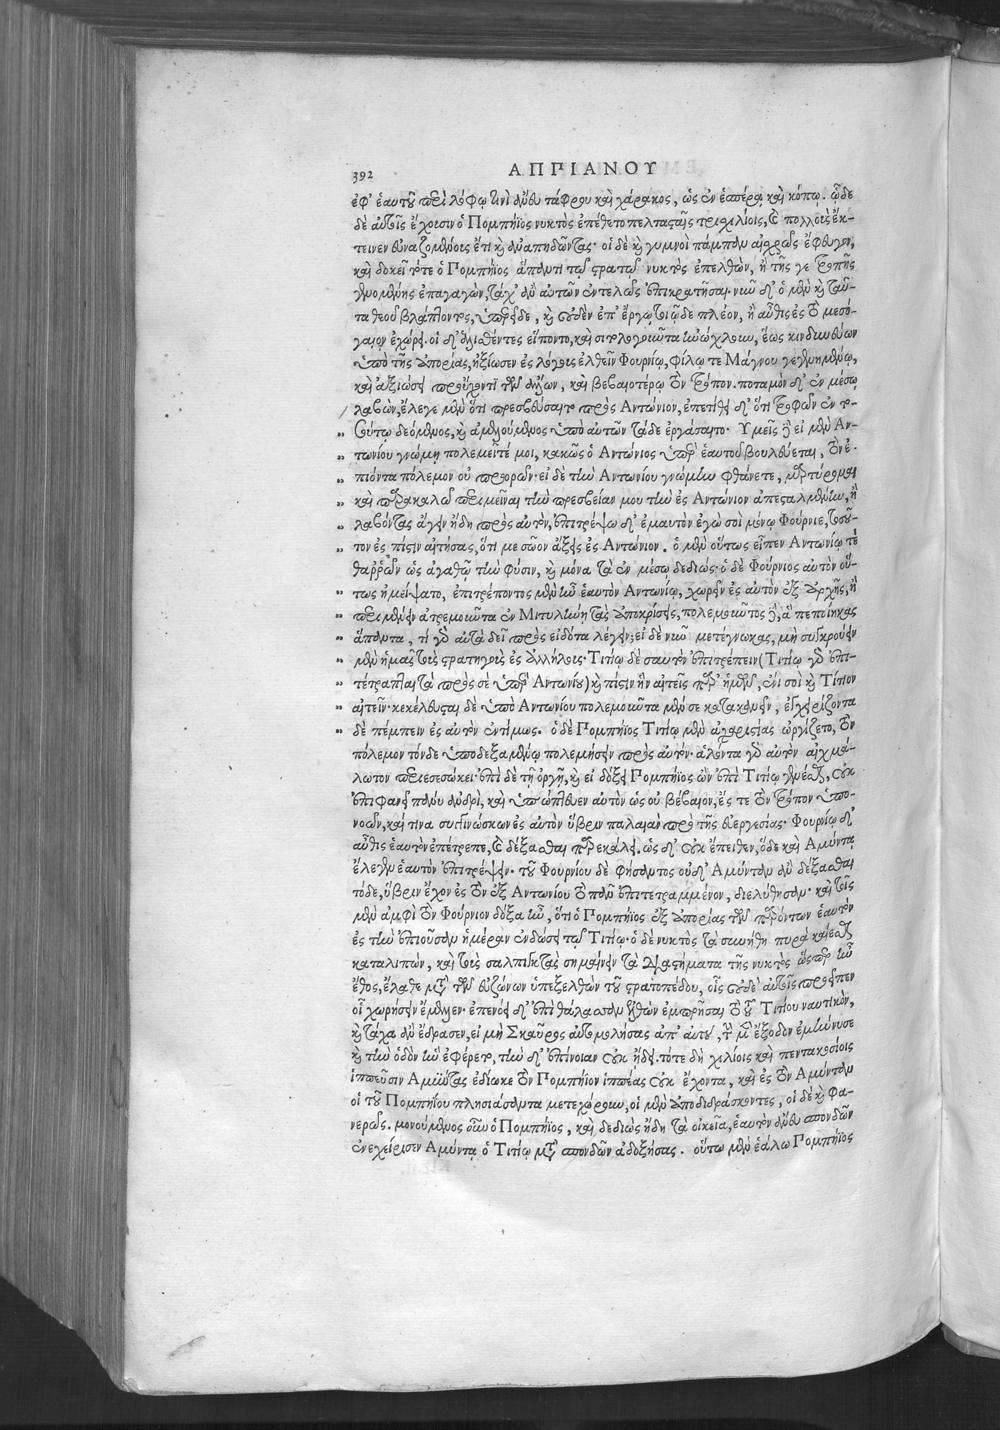 392 ΑΠΠΙΑΝΟΥ
ἐφ' ἑαυτοῦ περὶ λόφῳ τινὶ ἄνευ τάφρου καὶ χάρακος, ὡς ἐν ἑσπέρᾳ καὶ κόπῳ. ὧδε
δὲ αὐτοῖς ἔχουσιν ὁ Πομπήϊος νυκτὸς ἐπέθετο πελτασταῖς τρισχιλίοις, καὶ πολλοὺς ἔκ-
τεινεν εὐναζομένους ἔτι καὶ ἀναπηδῶντας· οἱ δὲ καὶ γυμνοὶ πάμπαν αἰσχρῶς ἔφευγον,
καὶ δοκεῖ τότε ὁ Πομπήϊος ἅπαντι τῷ στρατῷ νυκτὸς ἐπελθὼν, ἢ τῆς γε τροπῆς
γενομένης ἐπαγαγὼν, τάχ' ἂν αὐτῶν ἐντελῶς ἐπικρατῆσαι· νῦν δ' ὁ μὲν καὶ ταῦ-
τα θεοῦ βλάπτοντος, ὑπερεῖδε, καὶ οὐδὲν ἐπ' ἔργῳ τοιῷδε πλέον, ἢ αὖθις ἐς τὸ μεσό-
γαιον ἐχώρει. οἱ δ' ἁλισθέντες εἵποντο, καὶ σιτολογοῦντα ἠνώχλουν, ἕως κινδυνεύων
ὑπὸ τῆς ἀπορίας, ἠξίωσεν ἐς λόγους ἐλθεῖν Φουρνίῳ, φίλῳ τε Μάγνου γεγενημένῳ,
καὶ ἀξιώσει προὔχοντι τῶν ἄλλων, καὶ βεβαιοτέρῳ τὸν τρόπον. ποταμὸν δ' ἐν μέσῳ
λαβὼν, ἔλεγε μὲν ὅτι πρεσβεύσαιτο πρὸς Ἀντώνιον, ἐπετίθει δ' ὅτι τροφῶν ἐν τ-
ούτῳ δεόμενος, καὶ ἀμελούμενος ὑπὸ αὐτῶν τάδε ἐργάσαιτο· Ὑμεῖς δὲ εἰ μὲν Ἀν-
τωνίου γνώμῃ πολεμεῖτέ μοι, κακῶς ὁ Ἀντώνιος ὑπὲρ ἑαυτοῦ βουλεύεται, τὸν ἐ-
πιόντα πόλεμον οὐ προορῶν· εἰ δὲ τὴν Ἀντωνίου γνώμην φθάνετε, μαρτύρομαι
καὶ παρακαλῶ περιμεῖναι τὴν πρεσβείαν μου τὴν ἐς Ἀντώνιον ἀπεσταλμένην, ἢ
λαβόντας ἄγειν ἤδη πρὸς αὐτὸν, ἐπιτρέψω δ' ἐμαυτὸν ἐγὼ σοὶ μόνῳ Φούρνιε, τοσοῦ-
τον ἐς πίστιν αἰτήσας, ὅτι με σῶον ἄξεις ἐς Ἀντώνιον. ὁ μὲν οὕτως εἶπεν Ἀντωνίῳ τε
θαῤῥῶν ὡς ἀγαθῷ τὴν φύσιν, καὶ μόνα τὰ ἐν μέσῳ δεδιώς· ὁ δὲ Φούρνιος αὐτὸν οὕ-
τως ἠμείψατο, ἐπιτρέποντος μὲν ἦν ἑαυτὸν Ἀντωνίῳ, χωρεῖν ἐς αὐτὸν ἐξ ἀρχῆς, ἢ
περιμένειν ἀτρεμοῦντα ἐν Μιτυλήνῃ τὰς ἀποκρίσεις, πολεμοῦντος δὲ, ἃ πεποίηκας
ἅπαντα, τί γὰρ αὐτὰ δεῖ πρὸς εἰδότα λέγειν; εἰ δὲ νῦν μετέγνωκας, μὴ συγκρούειν
μὲν ἡμᾶς τοὺς στρατηγοὺς ἐς ἀλλήλους· Τιτίῳ δὲ σαυτὸν ἐπιτρέπειν (Τιτίῳ γὰρ ἐπι-
τέτραπται τὰ πρὸς σὲ ὑπὲρ Ἀντωνίου) καὶ πίστιν ἣν αἰτεῖς παρ' ἡμῶν, ἔνι σοὶ καὶ Τίτιον
αἰτεῖν· κεκέλευσται δὲ ὑπὸ Ἀντωνίου πολεμοῦντα μέν σε κατακανεῖν, ἐγχειρίζοντα
δὲ πέμπειν ἐς αὐτὸν ἐντίμως. ὁ δὲ Πομπήϊος Τιτίῳ μὲν ἀχαριστίας ὠργίζετο, τὸν
πόλεμον τόνδε ὑποδεξαμένῳ πολεμήσειν πρὸς αὐτόν· ἁλόντα γὰρ αὐτὸν αἰχμά-
λωτον περιεσεσώκει· ἐπὶ δὲ τῇ ὀργῇ, καὶ εἰ δόξει Πομπήϊος ὢν ἐπὶ Τιτίῳ γενέσθαι, οὐκ
ἐπιφανεῖ πάνυ ἀνδρὶ, καὶ ὑπώπτευεν αὐτὸν ὡς οὐ βέβαιον, ἔς τε τὸν τρόπον ὑπο-
νοῶν, καί τινα συγγινώσκων ἐς αὐτὸν ὕβριν παλαιὰν πρὸ τῆς εὐεργεσίας· Φουρνίῳ δ'
αὖθις ἑαυτὸν ἐπέτρεπε, καὶ δέξασθαι παρεκάλει. ὡς δ' οὐκ ἔπειθεν, ὅδε καὶ Ἀμύντᾳ
ἔλεγεν ἑαυτὸν ἐπιτρέψειν· τοῦ Φουρνίου δὲ φήσαντος οὐδ' Ἀμύνταν ἂν δέξασθαι
τόδε, ὕβριν ἔχον ἐς τὸν ἐξ Ἀντωνίου τὸ πᾶν ἐπιτετραμμένον, διελύθησαν· καὶ τοῖς
μὲν ἀμφὶ τὸν Φούρνιον δόξα ἦν, ὅτι ὁ Πομπήϊος ἐξ ἀπορίας τῶν παρόντων ἑαυτὸν
ἐς τὴν ἐπιοῦσαν ἡμέραν ἐνδώσει τῷ Τιτίῳ· ὁ δὲ νυκτὸς τὰ συνήθη πυρὰ καίεσθαι
καταλιπὼν, καὶ τοὺς σαλπιγκτὰς σημαίνειν τὰ διαστήματα τῆς νυκτὸς ὥσπερ ἦν
ἔθος, ἔλαθε μετὰ τῶν εὐζώνων ὑπεξελθὼν τοῦ στρατοπέδου, οἷς οὐδὲ αὐτοῖς προεῖπεν
οἷ χωρήσειν ἔμελλεν· ἐπενόει δ' ἐπὶ θάλασσαν ἐλθὼν ἐμπρῆσαι τὸ τοῦ Τιτίου ναυτικὸν,
καὶ τάχα ἂν ἔδρασεν, εἰ μὴ Σκαῦρος αὐτομολήσας ἀπ' αὐτοῦ, τὴν μὲν ἔξοδον ἐμήνυσε
καὶ τὴν ὁδὸν ἣν ἐφέρετο, τὴν δ' ἐπίνοιαν οὐκ ᾔδει. τότε δὴ χιλίοις καὶ πεντακοσίοις
ἱππεῦσιν Ἀμύντας ἐδίωκε τὸν Πομπήϊον ἱππέας οὐκ ἔχοντα, καὶ ἐς τὸν Ἀμύνταν
οἱ τοῦ Πομπηΐου πλησιάσαντα μετεχώρουν, οἱ μὲν ἀποδιδράσκοντες, οἱ δὲ καὶ φα-
νερῶς. μονούμενος οὖν ὁ Πομπήϊος, καὶ δεδιὼς ἤδη τὰ οἰκεῖα, ἑαυτὸν ἄνευ σπονδῶν
ἐνεχείρισεν Ἀμύντᾳ ὁ Τιτίῳ μετὰ σπονδῶν ἀδοξήσας. οὕτω μὲν ἑάλω Πομπήϊος